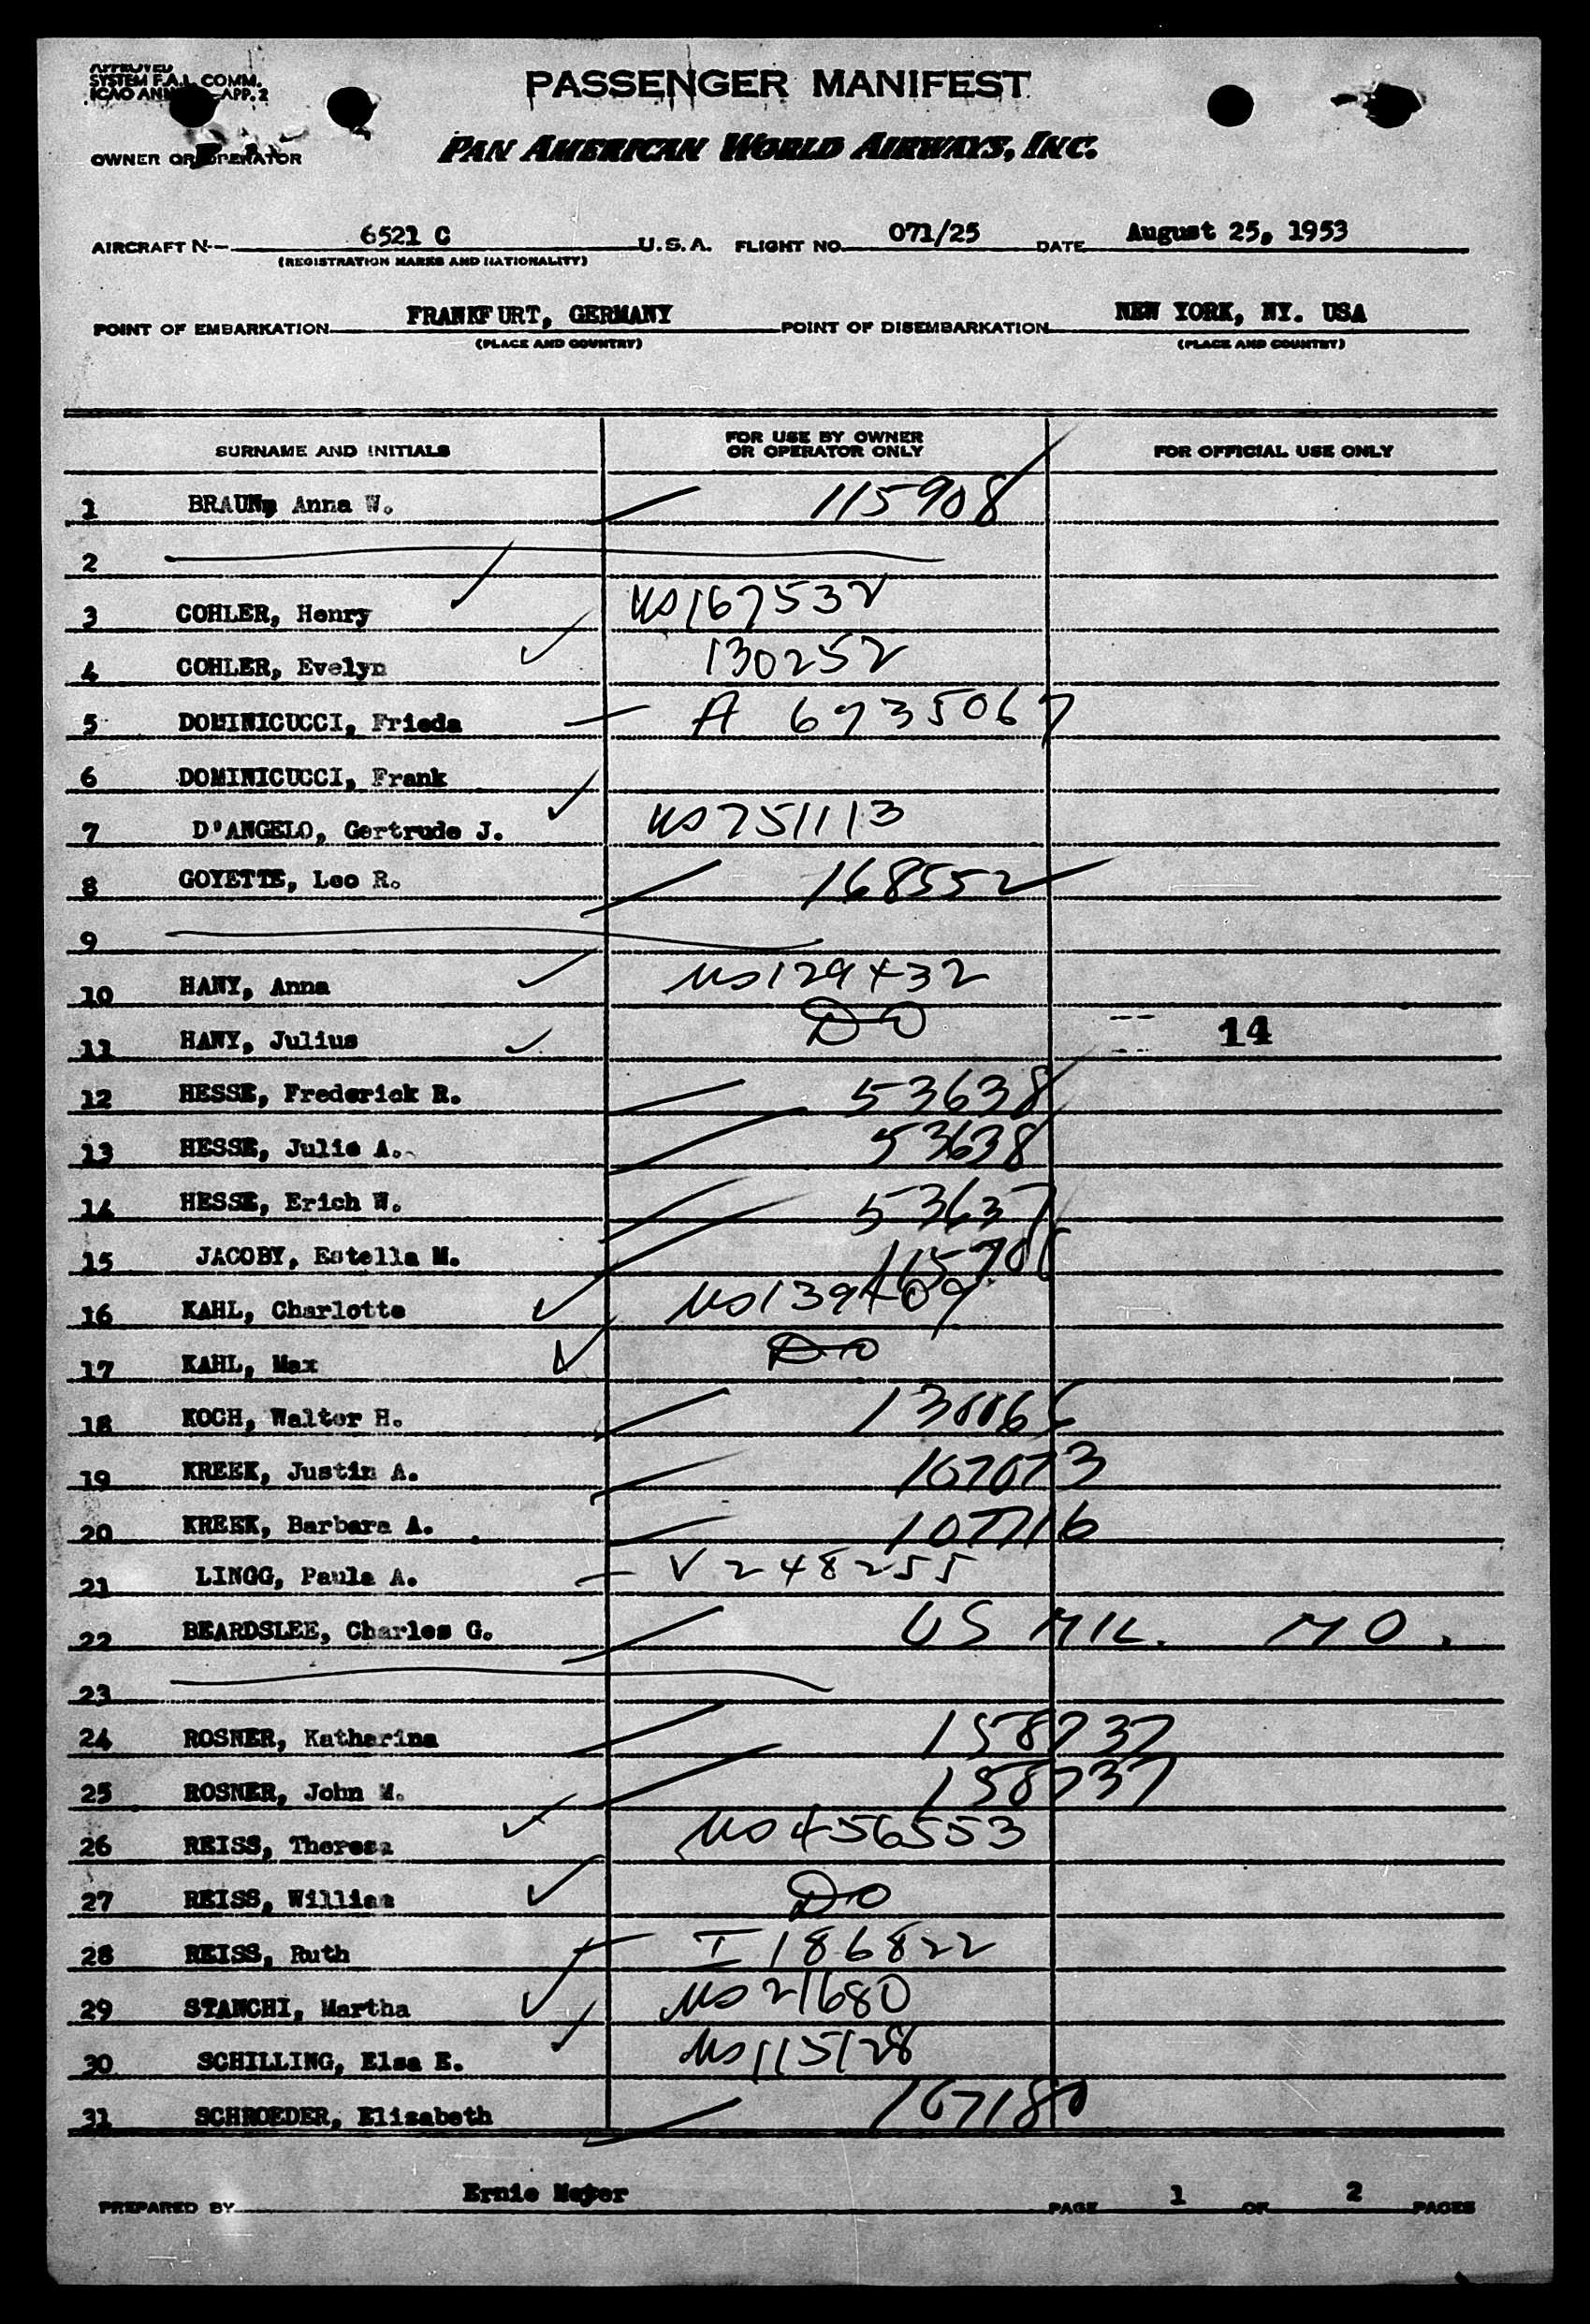 APPROVED
SYSTEM F.A.L. COMM.
ICAO APP. 2
PASSENGER MANIFEST
OWNER OR OPERATOR
PAN AMERICAN WORLD AIRWAYS, INC.
AIRCRAFT N- 6521 C U.S.A. FLIGHT NO. 071/25 DATE August 25, 1953
(REGISTRATION MARKS AND NATIONALITY)
POINT OF EMBARKATION FRANKFURT, GERMANY POINT OF DISEMBARKATION NEW YORK, NY. USA
(PLACE AND COUNTRY) (PLACE AND COUNTRY)
SURNAME AND INITIALS FOR USE BY OWNER OR OPERATOR ONLY FOR OFFICIAL USE ONLY
1 BRAUN, Anna W. 115908
2
3 COHLER, Henry US167532
4 COHLER, Evelyn 130252
5 DOMINICUCCI, Frieda A 6735067
6 DOMINICUCCI, Frank
7 D'ANGELO, Gertrude J. US751113
8 GOYETTE, Leo R. 168552
9
10 HANY, Anna US129432
11 HANY, Julius DO 14
12 HESSE, Frederick R. 53638
13 HESSE, Julie A. 53638
14 HESSE, Erich W. 53637
15 JACOBY, Estella M.
16 KAHL, Charlotte US139409
17 KAHL, Max DO
18 KOCH, Walter H.
19 KREEK, Justin A. 107073
20 KREEK, Barbara A. 107716
21 LINGG, Paula A. V248255
22 BEARDSLEE, Charles G. US MIL. MO.
23
24 ROSNER, Katharina 158737
25 ROSNER, John M. 158737
26 REISS, Theresa US456553
27 REISS, William DO
28 REISS, Ruth I186822
29 STANCHI, Martha US21680
30 SCHILLING, Elsa E. US115128
31 SCHROEDER, Elisabeth 107180
PREPARED BY Ernie Meyer PAGE 1 OF 2 PAGES